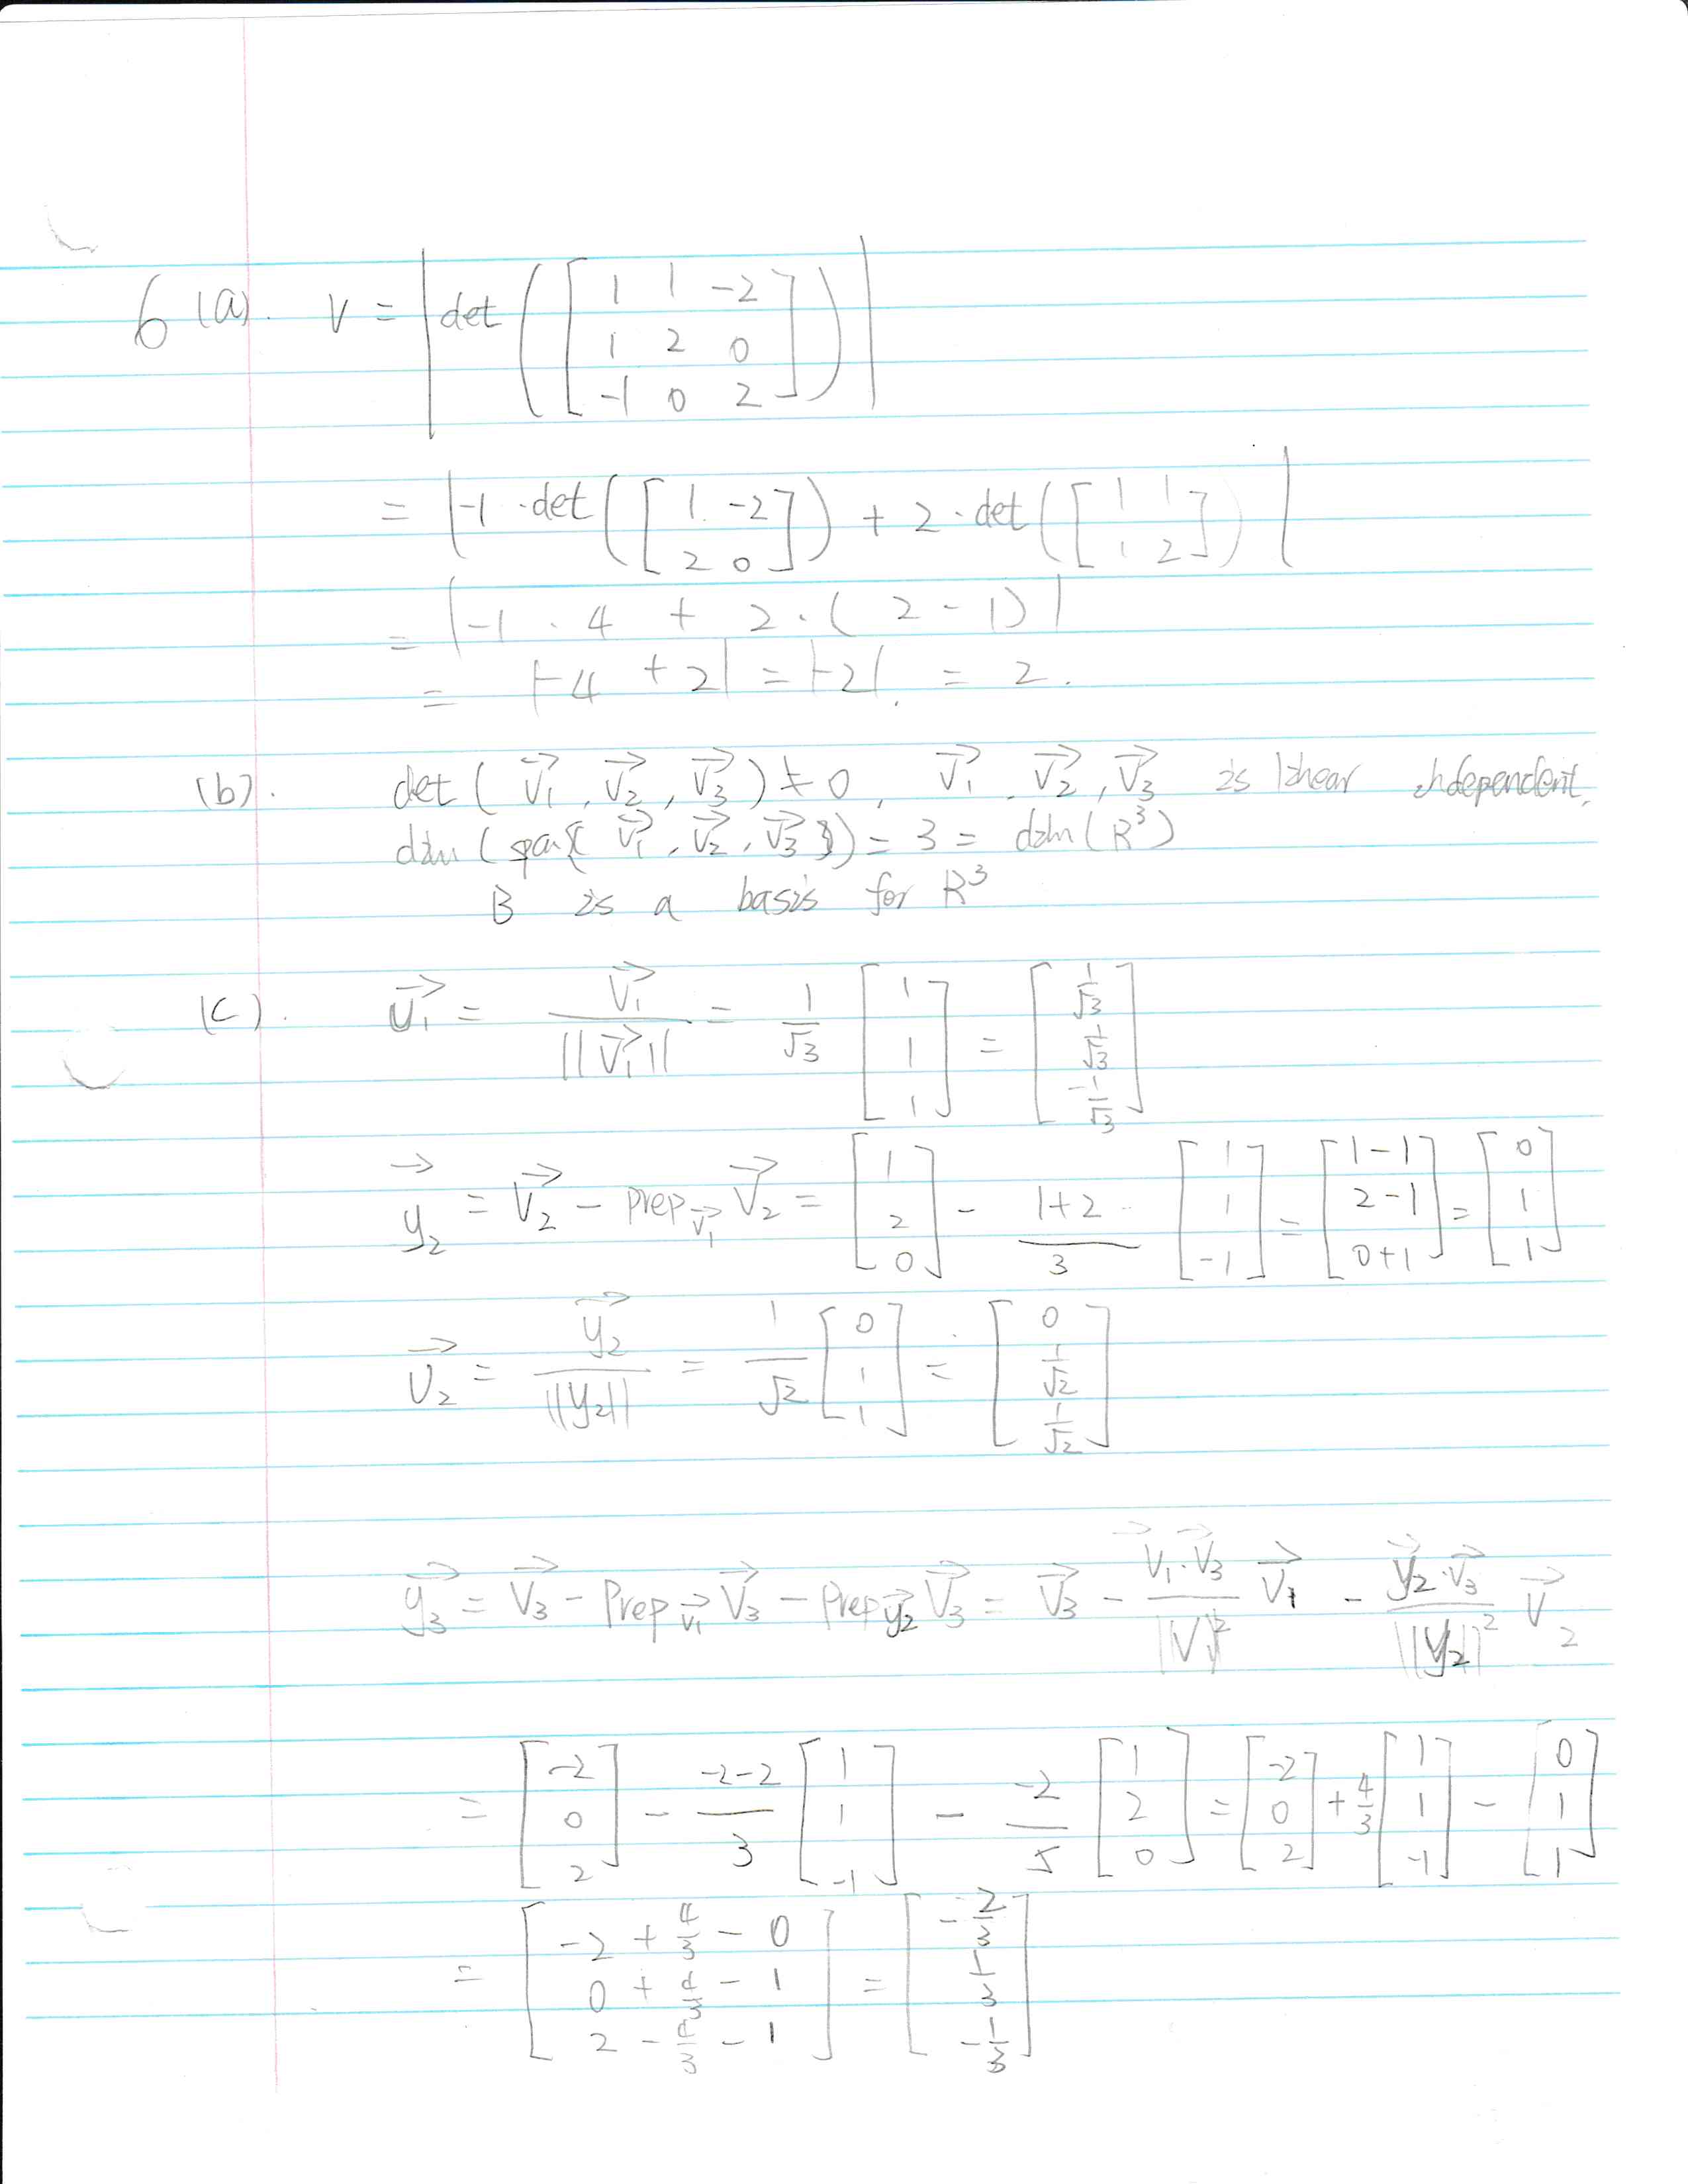 6 (a). V = |det([1 1 -2; 1 2 0; -1 0 2])|
= |-1 · det([1 -2; 2 0]) + 2 · det([1 1; 1 2])|
= |-1 · 4 + 2 · (2 - 1)|
= |-4 + 2| = |-2| = 2.
(b). det(v⃗₁, v⃗₂, v⃗₃) ≠ 0, v⃗₁, v⃗₂, v⃗₃ is linear independent.
dim(span{v⃗₁, v⃗₂, v⃗₃}) = 3 = dim(R³)
B is a basis for R³
(c). u⃗₁ = v⃗₁/||v⃗₁|| = 1/√3 [1; 1; 1] = [1/√3; 1/√3; -1/√3]
y⃗₂ = v⃗₂ - prep_v⃗₁ v⃗₂ = [1; 2; 0] - (1+2)/3 [1; 1; -1] = [1-1; 2-1; 0+1] = [0; 1; 1]
u⃗₂ = y⃗₂/||y₂|| = 1/√2 [0; 1; 1] = [0; 1/√2; 1/√2]
y⃗₃ = v⃗₃ - Prep_v⃗₁ v⃗₃ - Prep_y⃗₂ v⃗₃ = v⃗₃ - (v⃗₁·v⃗₃)/|V|² v⃗₁ - (y⃗₂·v⃗₃)/||y₂||² v⃗₂
= [-2; 0; 2] - (-2-2)/3 [1; 1; -1] - -2/5 [1; 2; 0] = [-2; 0; 2] + 4/3 [1; 1; -1] - [0; 1; 1]
= [-2 + 4/3 - 0; 0 + 4/3 - 1; 2 - 4/3 - 1] = [-2/3; 1/3; -1/3]